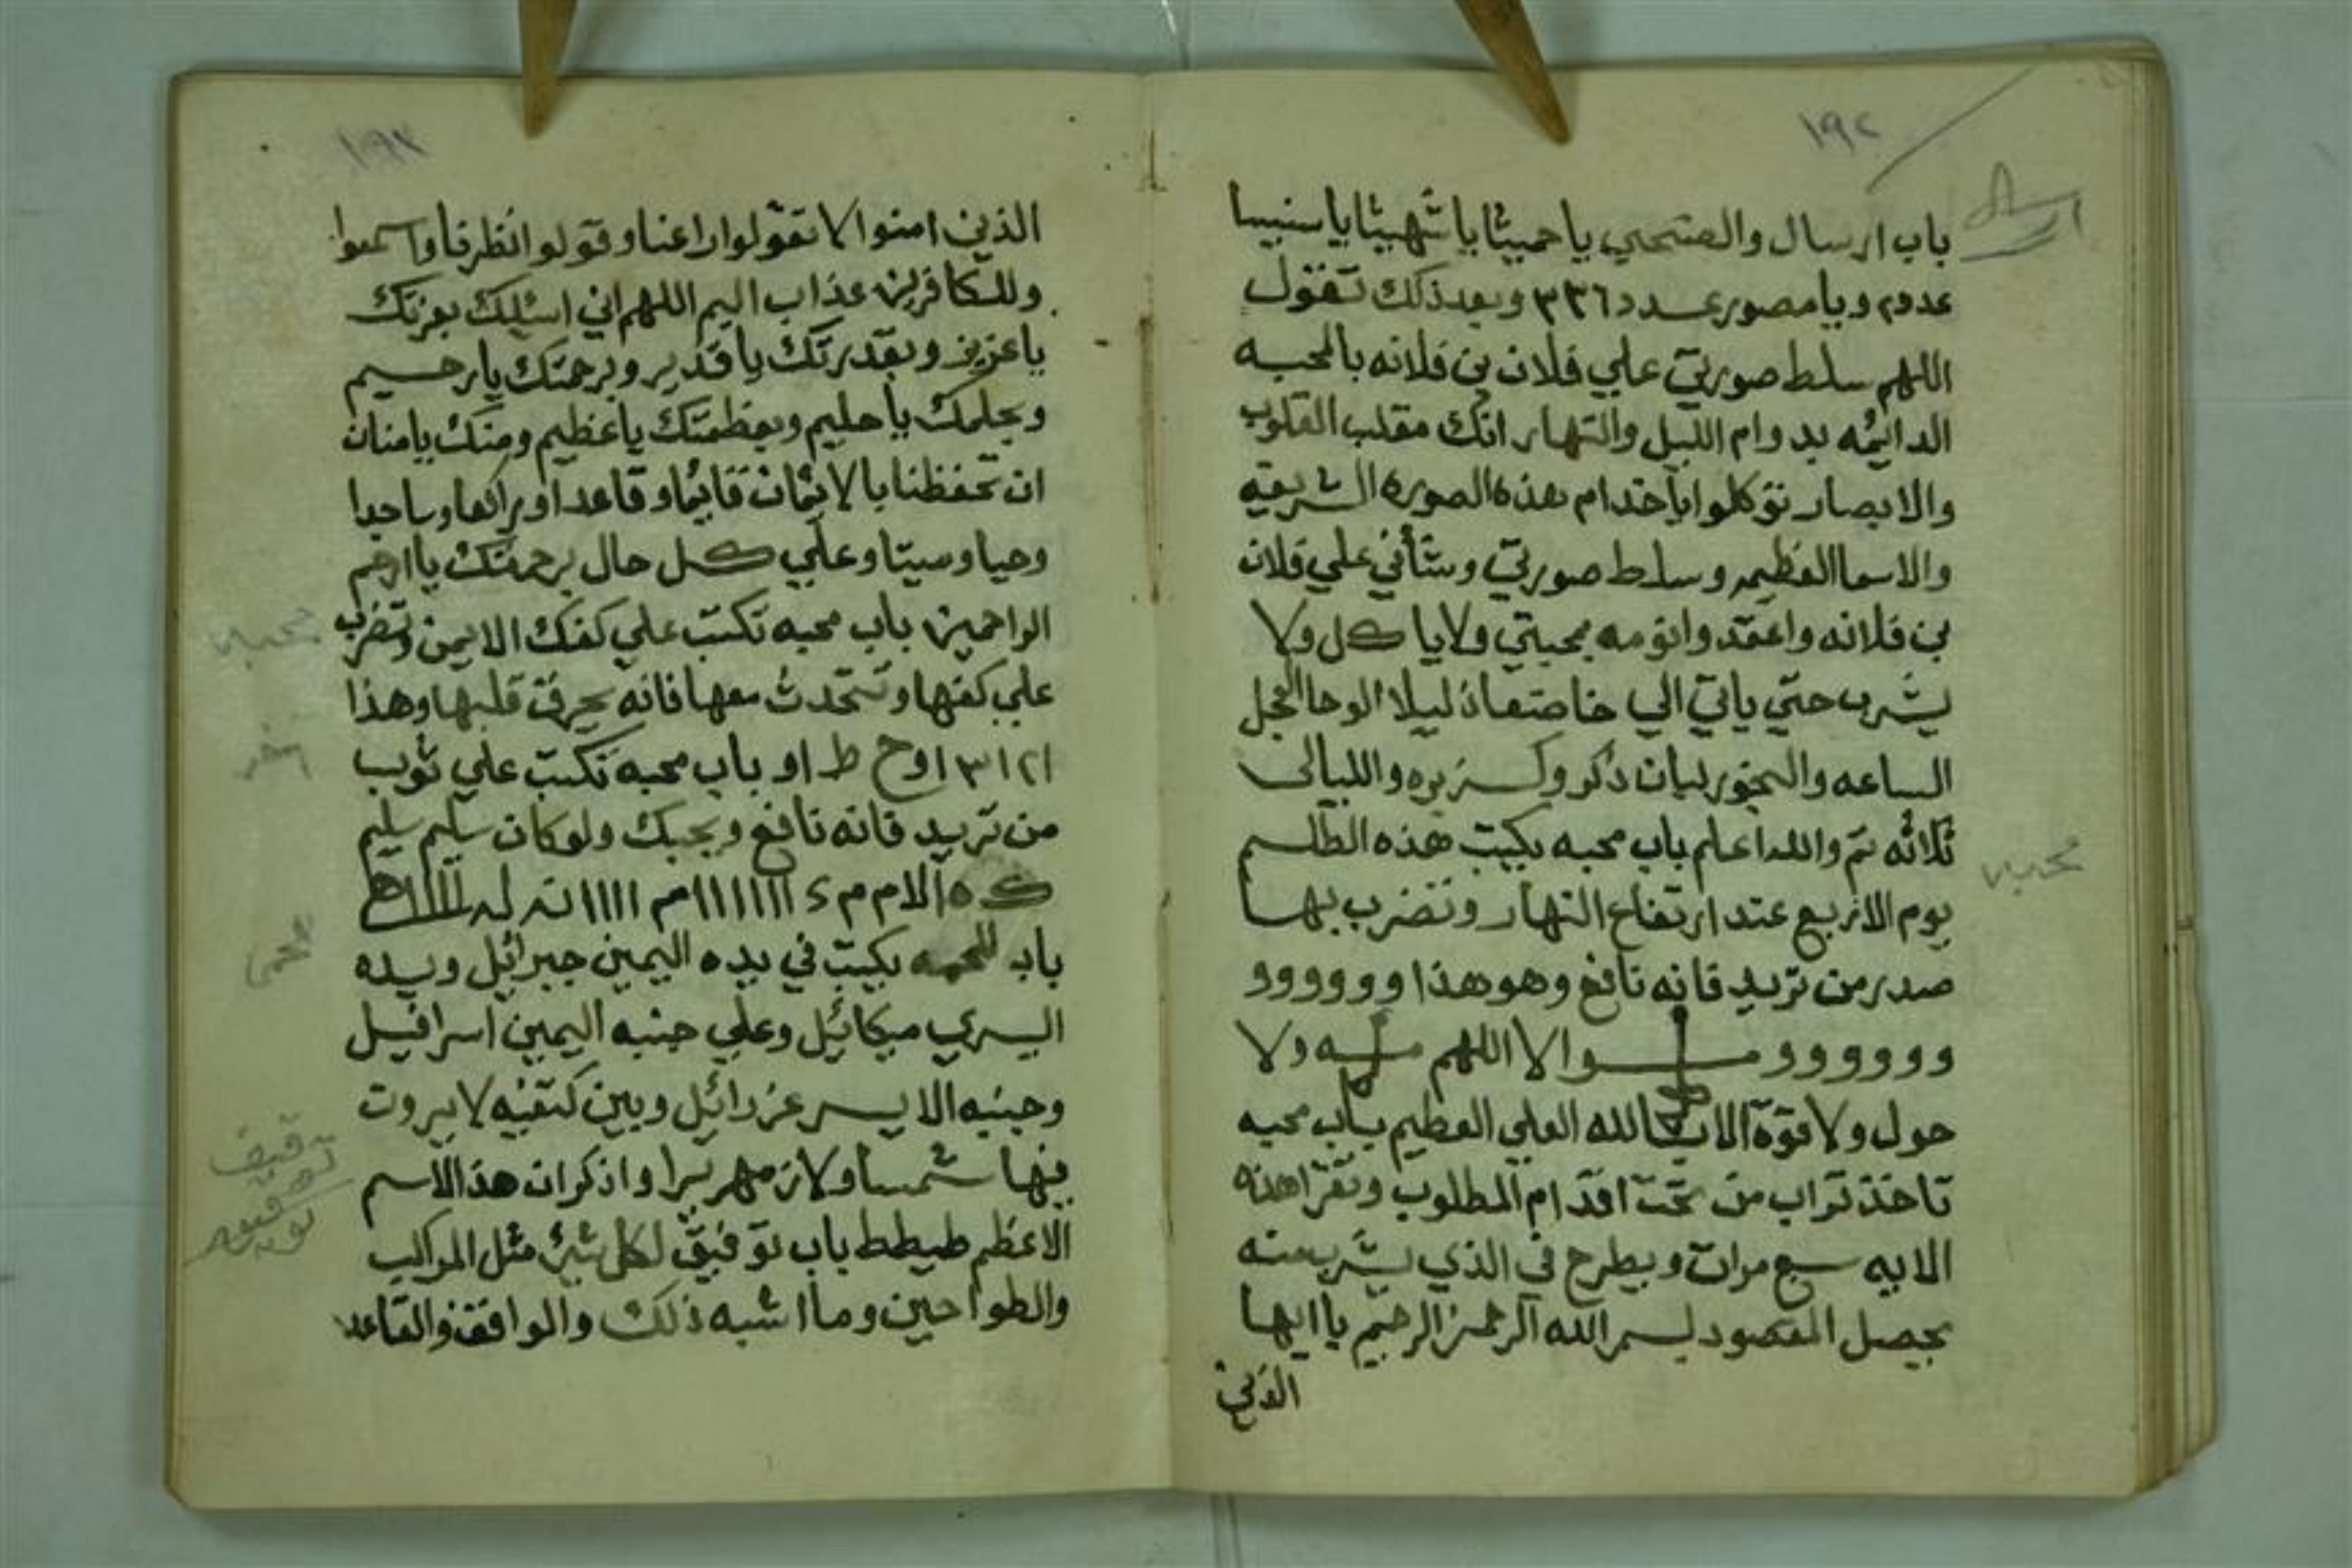 ١٩٢
ارسال
باب ارسال والصتحي يا حميثا يا شهيثا يا سنيسا
عدد٢ ويا مصور عدد ٣٣٦ وبعد ذلك تقول
اللهم سلط صورتي علي فلان بن فلانه بالمحبه
الدايمه بدوام الليل والنهار انك مقلب القلوب
والابصار توكلوا يا خدام هذه الصوره الشريفه
والاسما العظيمه وسلط صورتي وشأني علي فلان
بن فلانه واعقد وانومه بمحبتي ولا ياكل ولا
يشرب حتي ياتي الي خاضعا ذليلا الوحا العجل
الساعه والبخور لبان ذكر وكسبره والليالي
ثلاثه تم والله اعلم باب محبه يكتب هذه الطلسم
محبه
يوم الاربع عند ارتفاع النهار وتضرب بها
صدر من تريد فانه نافع وهو هذا و و و و و و
و و و و و و والا اللهم ولا
حول ولا قوة الا بالله العلي العظيم باب محبه
تاخذ تراب من تحت اقدام المطلوب وتقرا هذه
الايه سبع مرات ويطرح في الذي يشرب منه
يحصل المقصود بسم الله الرحمن الرحيم يا ايها
الذين
١٩٣
الذين امنوا لا تقولوا راعنا وقولوا انظرنا واسمعوا
وللكافرين عذاب اليم اللهم اني اسئلك بعزتك
يا عزيز وبقدرتك يا قدير وبرحمتك يا رحيم
وبحلمك يا حليم وبعظمتك ياعظيم ومنك يا منان
ان تحفظنا بالايمان قايما وقاعدا وراكعا وساجدا
وحيا وميتا وعلي كل حال برحمتك يا ارحم
الراحمين باب محبه تكتب علي كفك الايمن وتضرب
محبه
علي كفها وتتحدث معها فانه يحرق قلبها وهذا
١٢١ ٣ ١ و ح ط او باب محبه تكتب علي ثوب
اخر
من تريد فانه نافع ويحبك ولوكان سليم سليم
ك ه الام م ء ١١١١١١١ م ١١١١
باب للحمه يكتب في يده اليمين جبرائيل ويده
للحمى
اليسري ميكائيل وعلي جنبه اليمين اسرافيل
وجنبه الايسر عزرائيل وبين كتفيه لا يروت
فيها شمسا ولا زمهريرا واذكر ان هذا الاسم
الاعظم طيطط باب توفيق لكل شئ مثل المراكب
توفيق
والطواحين وما اشبه ذلك والواقف والقاعد